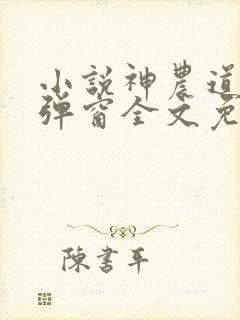 小説神農道
弾窗全文免
陳書平